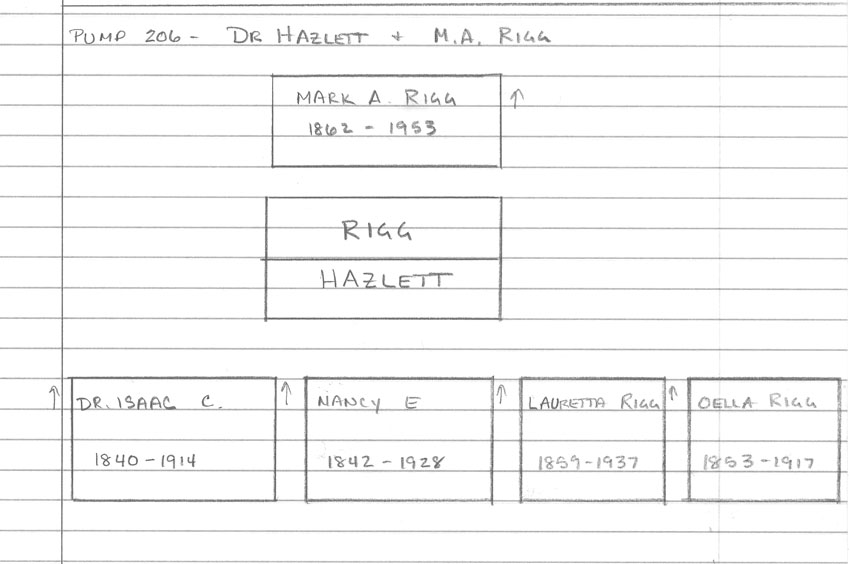 PUMP 206 - DR HAZLETT + M.A. RIGG
MARK A. RIGG ↑
1862 - 1953
RIGG
HAZLETT
↑ DR. ISAAC C. ↑ NANCY E ↑ LAURETTA RIGG ↑ OELLA RIGG
1840 - 1914 1842 - 1928 1859 - 1937 1853 - 1917